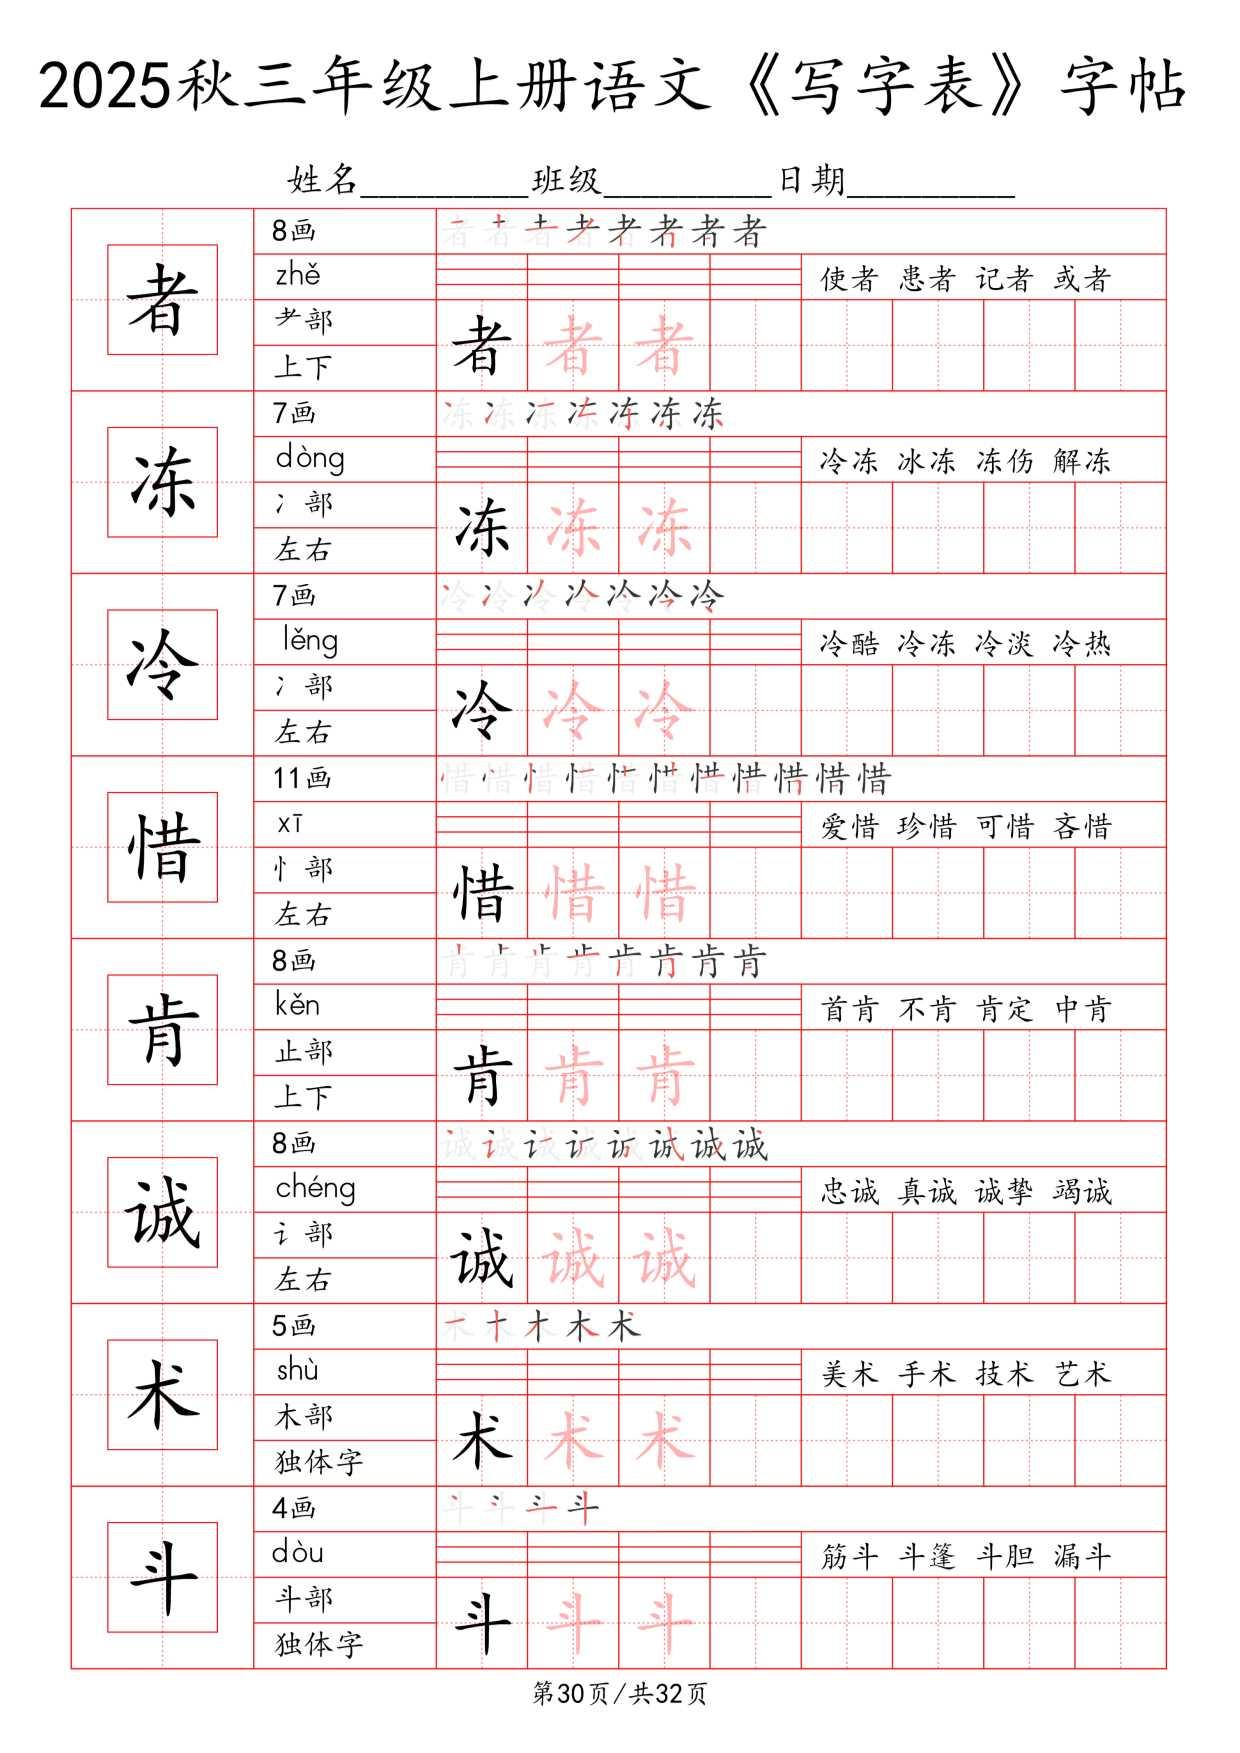 2025秋三年级上册语文《写字表》字帖
姓名__________班级__________日期__________
者
8画
者者者者者者者者
zhě
使者 患者 记者 或者
耂部
者者者
上下
冻
7画
冻冻冻冻冻冻冻
dòng
冷冻 冰冻 冻伤 解冻
冫部
冻冻冻
左右
冷
7画
冷冷冷冷冷冷冷
lěng
冷酷 冷冻 冷淡 冷热
冫部
冷冷冷
左右
惜
11画
惜惜惜惜惜惜惜惜惜惜惜
xī
爱惜 珍惜 可惜 吝惜
忄部
惜惜惜
左右
肯
8画
肯肯肯肯肯肯肯肯
kěn
首肯 不肯 肯定 中肯
止部
肯肯肯
上下
诚
8画
诚诚诚诚诚诚诚诚
chéng
忠诚 真诚 诚挚 竭诚
讠部
诚诚诚
左右
术
5画
术术术术术
shù
美术 手术 技术 艺术
木部
术术术
独体字
斗
4画
斗斗斗斗
dòu
筋斗 斗篷 斗胆 漏斗
斗部
斗斗斗
独体字
第30页/共32页